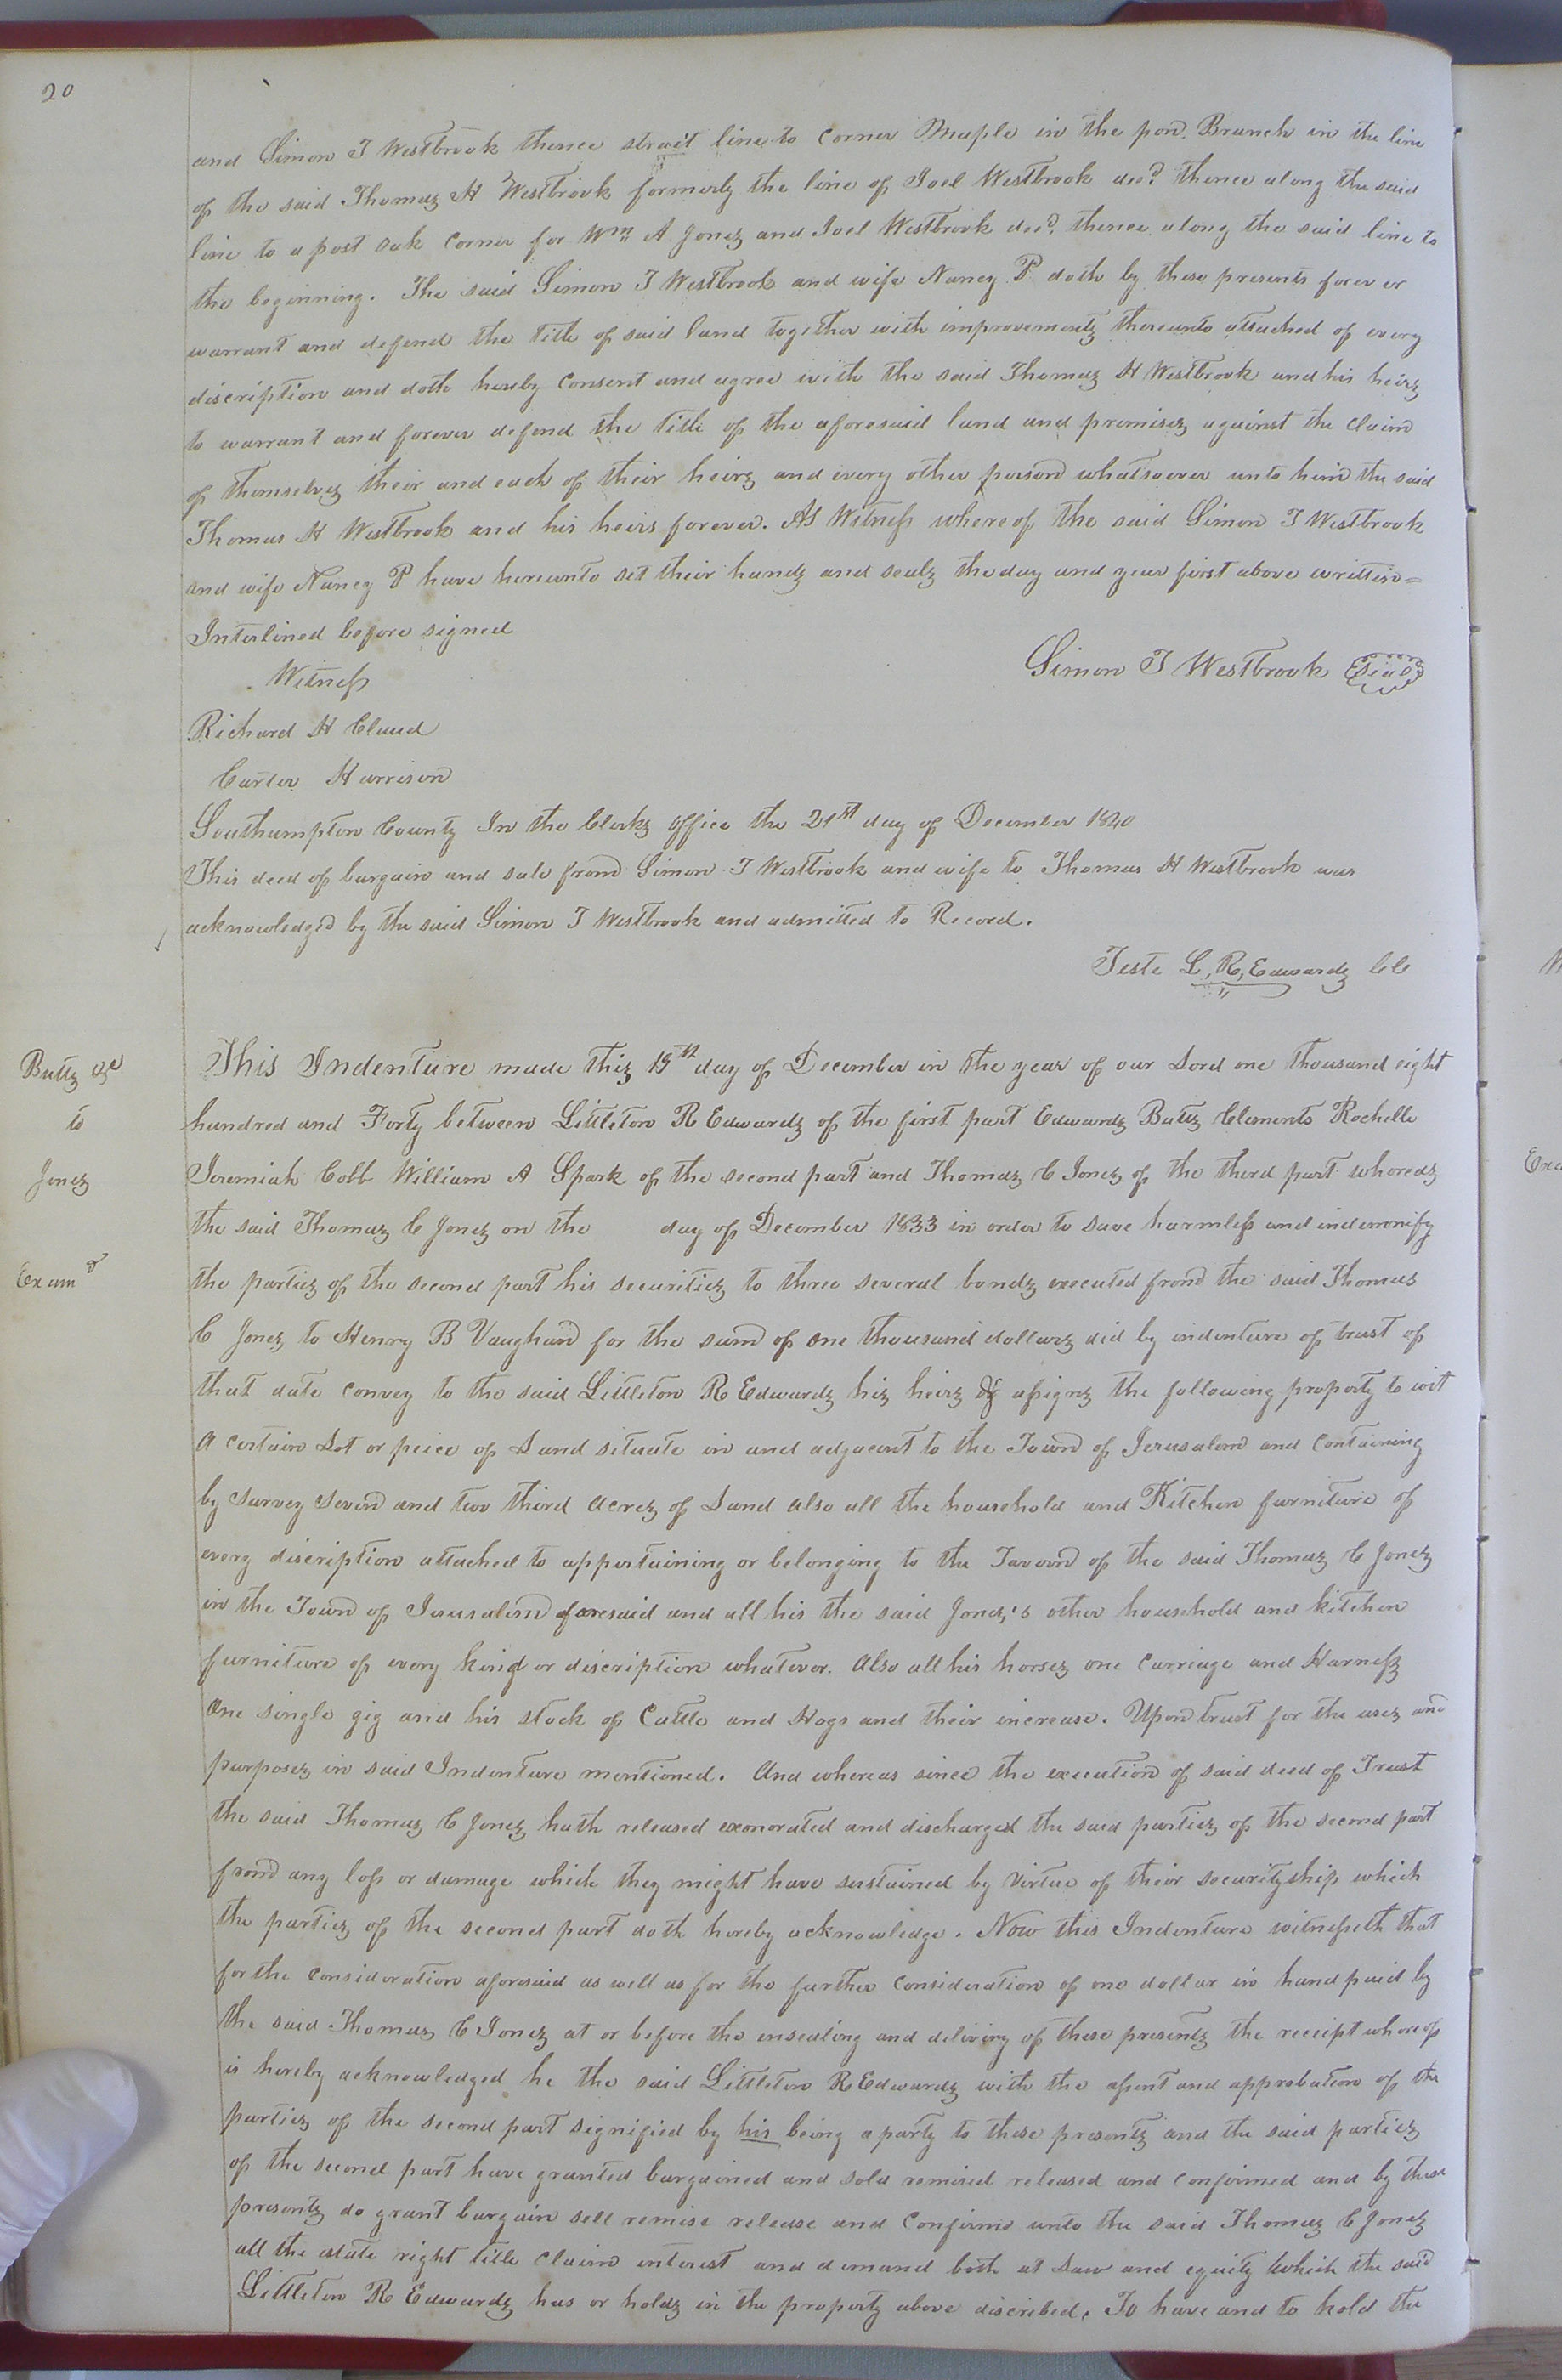 20
and Simon T Westbrook thence strait line to corner Maple in the pond Branch in the line
of the said Thomas H Westbrook formerly the line of Joel Westbrook decd. thence along the said
line to a post oak corner for Wm A Jones and Joel Westbrook decd. thence along the said line to
the beginning. The said Simon T Westbrook and wife Nancy P doth by these presents forever
warrant and defend the title of said land together with improvements thereunto attached of every
discription and doth hereby consent and agree with the said Thomas H Westbrook and his heirs
to warrant and forever defend the title of the aforesaid land and premises against the claim
of themselves their and each of their heirs and every other person whatsoever unto him the said
Thomas H Westbrook and his heirs forever. As Witness whereof the said Simon T Westbrook
and wife Nancy P have hereunto set their hands and seals the day and year first above written=
Interlined before signed
Simon T Westbrook Seal
Witness
Richard H Claud
Carter Harrison
Southampton County In the Clerks office the 21st day of December 1840
This deed of bargain and sale from Simon T Westbrook and wife to Thomas H Westbrook was
acknowledged by the said Simon T Westbrook and admitted to Record.
Teste L, R, Edwards CC
Butts &c
to
Jones
Examd
This Indenture made this 19th day of December in the year of our Lord one thousand eight
hundred and Forty between Littleton R Edwards of the first part Edwards Butts Clements Rochelle
Jeremiah Cobb William A Spark of the second part and Thomas C Jones of the third part whereas
the said Thomas C Jones on the day of December 1833 in order to save harmless and indemnify
the parties of the second part his securities to three several bonds executed from the said Thomas
C Jones to Henry B Vaughan for the sum of one thousand dollars did by indenture of trust of
that date convey to the said Littleton R Edwards his heirs & assigns the following property to wit
A certain Lot or peice of Land situate in and adjacent to the Town of Jerusalem and containing
by survey seven and two third acres of Land also all the household and Kitchen furniture of
every discription attached to appertaining or belonging to the Tavern of the said Thomas C Jones
in the Town of Jerusalem aforesaid and all his the said Jones's other household and kitchen
furniture of every kind or discription whatever. Also all his horses one carriage and Harness
One single gig and his stock of Cattle and Hogs and their increase. Upon trust for the uses and
purposes in said Indenture mentioned. And whereas since the execution of said deed of Trust
the said Thomas C Jones hath released exonorated and discharged the said parties of the second part
from any loss or damage which they might have sustained by virtue of their securityship which
the parties of the second part doth hereby acknowledge. Now this Indenture witnesseth that
for the consideration aforesaid as well as for the further consideration of one dollar in hand paid by
the said Thomas C Jones at or before the ensealing and deliviry of these presents the receipt whereof
is hereby acknowledged he the said Littleton R Edwards with the assent and approbation of the
parties of the second part signified by his being a party to these presents and the said parties
of the second part have granted bargained and sold remised released and confirmed and by these
presents do grant bargain sell remise release and confirm unto the said Thomas C Jones
all the estate right title claim interest and demand both at Law and equity which the said
Littleton R Edwards has or holds in the property above discribed. To have and to hold the